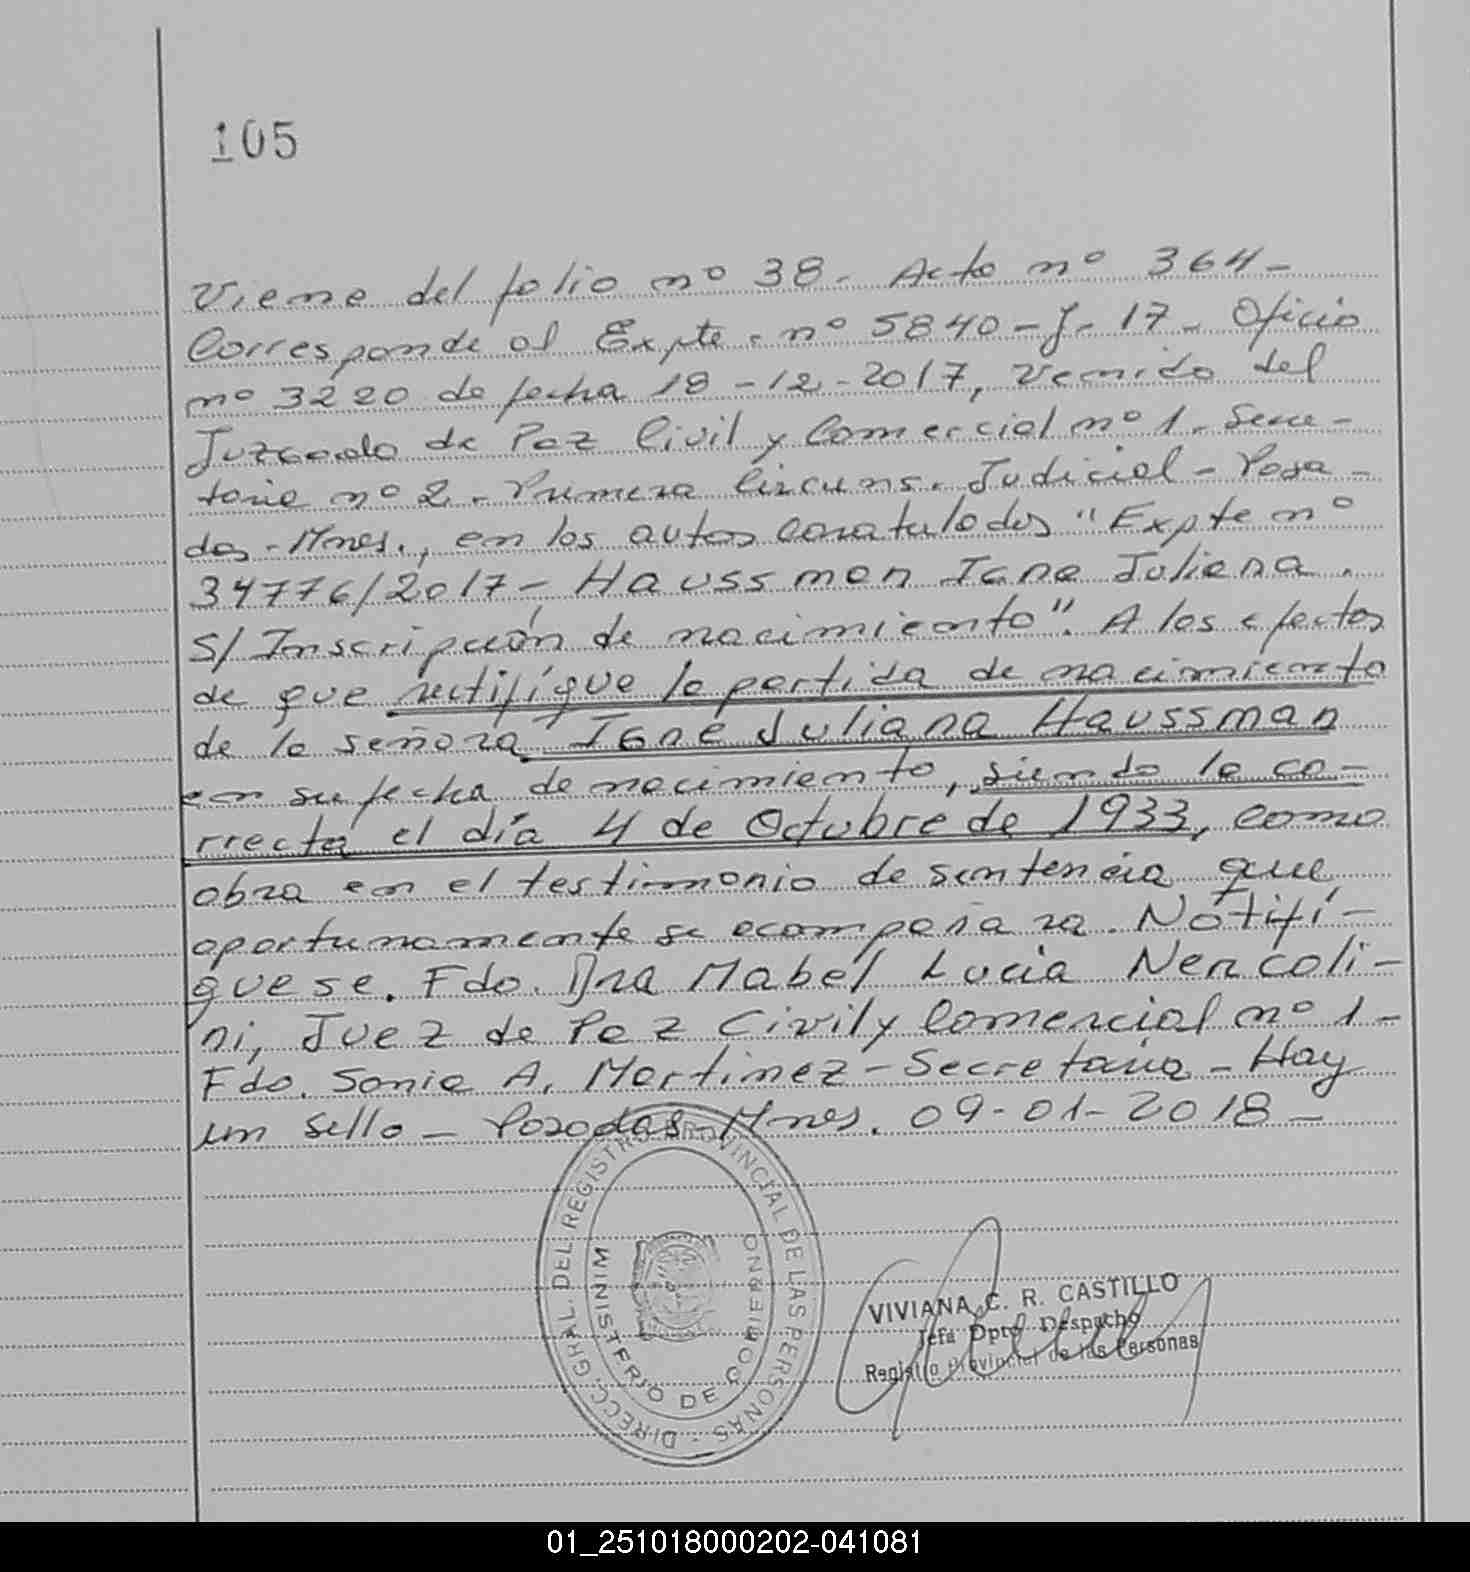 105
Viene del folio nº 38 - Acto nº 364 -
Corresponde al Expte. nº 5840 - J - 17 - Oficio
nº 3220 de fecha 18-12-2017, Venido del
Juzgado de Paz Civil y Comercial nº 1. Secre-
taria nº 2 - Primera Circuns. Judicial - Posa-
das - Mnes., en los autos caratulados "Expte nº
34776/2017 - Haussman Igne Juliana.
S/ Inscripción de nacimiento". A los efectos
de que rectifíque la partida de nacimiento
de la señora Igne Juliana Haussman
en su fecha de nacimiento, siendo la co-
rrecta el día 4 de Octubre de 1933, como
obra en el testimonio de sentencia que
oportunamente se acompañara. Notifí-
quese. Fdo. Dra Mabel Lucia Nencoli-
ni, Juez de Paz Civil y Comercial nº 1 -
Fdo. Sonia A. Martinez - Secretaria - Hay
un sello - Posadas - Mnes. 09-01-2018 -
DIRECC. GRAL. DEL REGISTRO PROVINCIAL DE LAS PERSONAS -
MINISTERIO DE GOBIERNO
VIVIANA C. R. CASTILLO
Jefa Dpto Despacho
Registro Provincial de las Personas
01_251018000202-041081